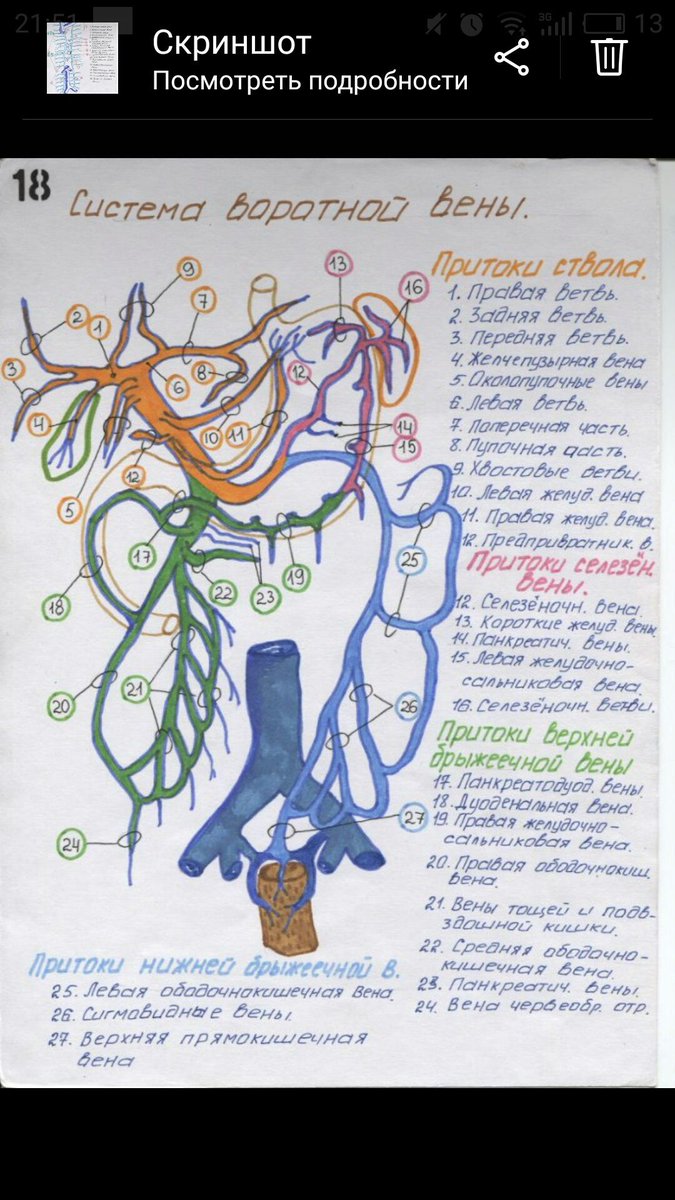 21:51
3G
13
Скриншот
Посмотреть подробности
18
Система воротной вены.
Притоки ствола.
1. Правая ветвь.
2. Задняя ветвь.
3. Передняя ветвь.
4. Желчепузырная вена
5. Околопупочные вены
6. Левая ветвь.
7. Поперечная часть.
8. Пупочная часть.
9. Хвостовые ветви.
10. Левая желуд. вена
11. Правая желуд. вена.
12. Предпривратник. в.
Притоки селезён.
вены.
12. Селезёночн. вена.
13. Короткие желуд. вены
14. Панкреатич. вены.
15. Левая желудочно-
сальниковая вена.
16. Селезёночн. ветви.
Притоки верхней
брыжеечной вены
17. Панкреатодуод. вены.
18. Дуоденальная вена.
19. Правая желудочно-
сальниковая вена.
20. Правая ободочнокиш.
вена.
21. Вены тощей и подв-
здошной кишки.
22. Средняя ободочно-
кишечная вена.
23. Панкреатич. вены.
24. Вена червеобр. отр.
Притоки нижней брыжеечной в.
25. Левая ободочнокишечная вена.
26. Сигмовидные вены.
27. Верхняя прямокишечная
вена
9
13
2
1
7
16
3
8
12
6
4
10
11
14
15
5
12
17
25
19
22
23
18
21
20
26
27
24